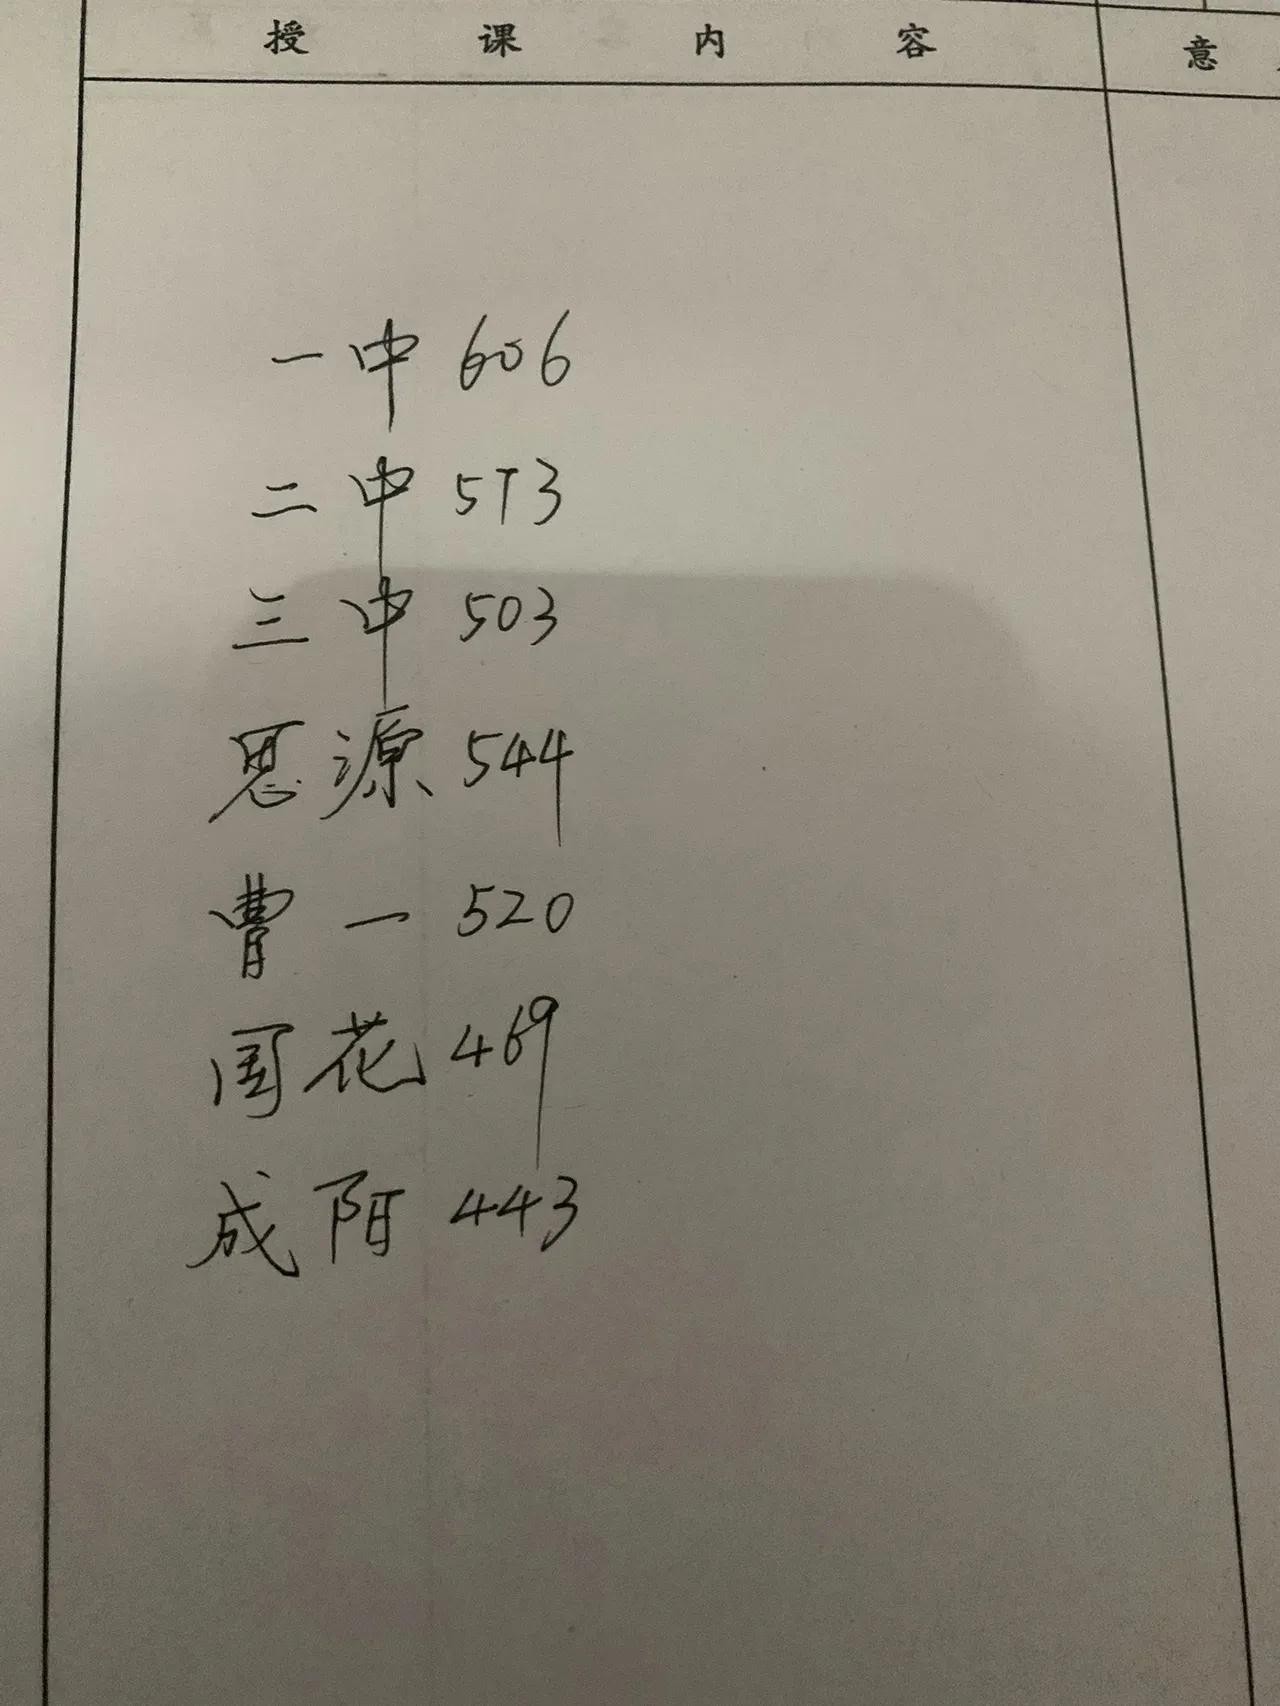 授课内容
意
一中 606
二中 573
三中 503
思源 544
曹一 520
国花 469
成阳 443